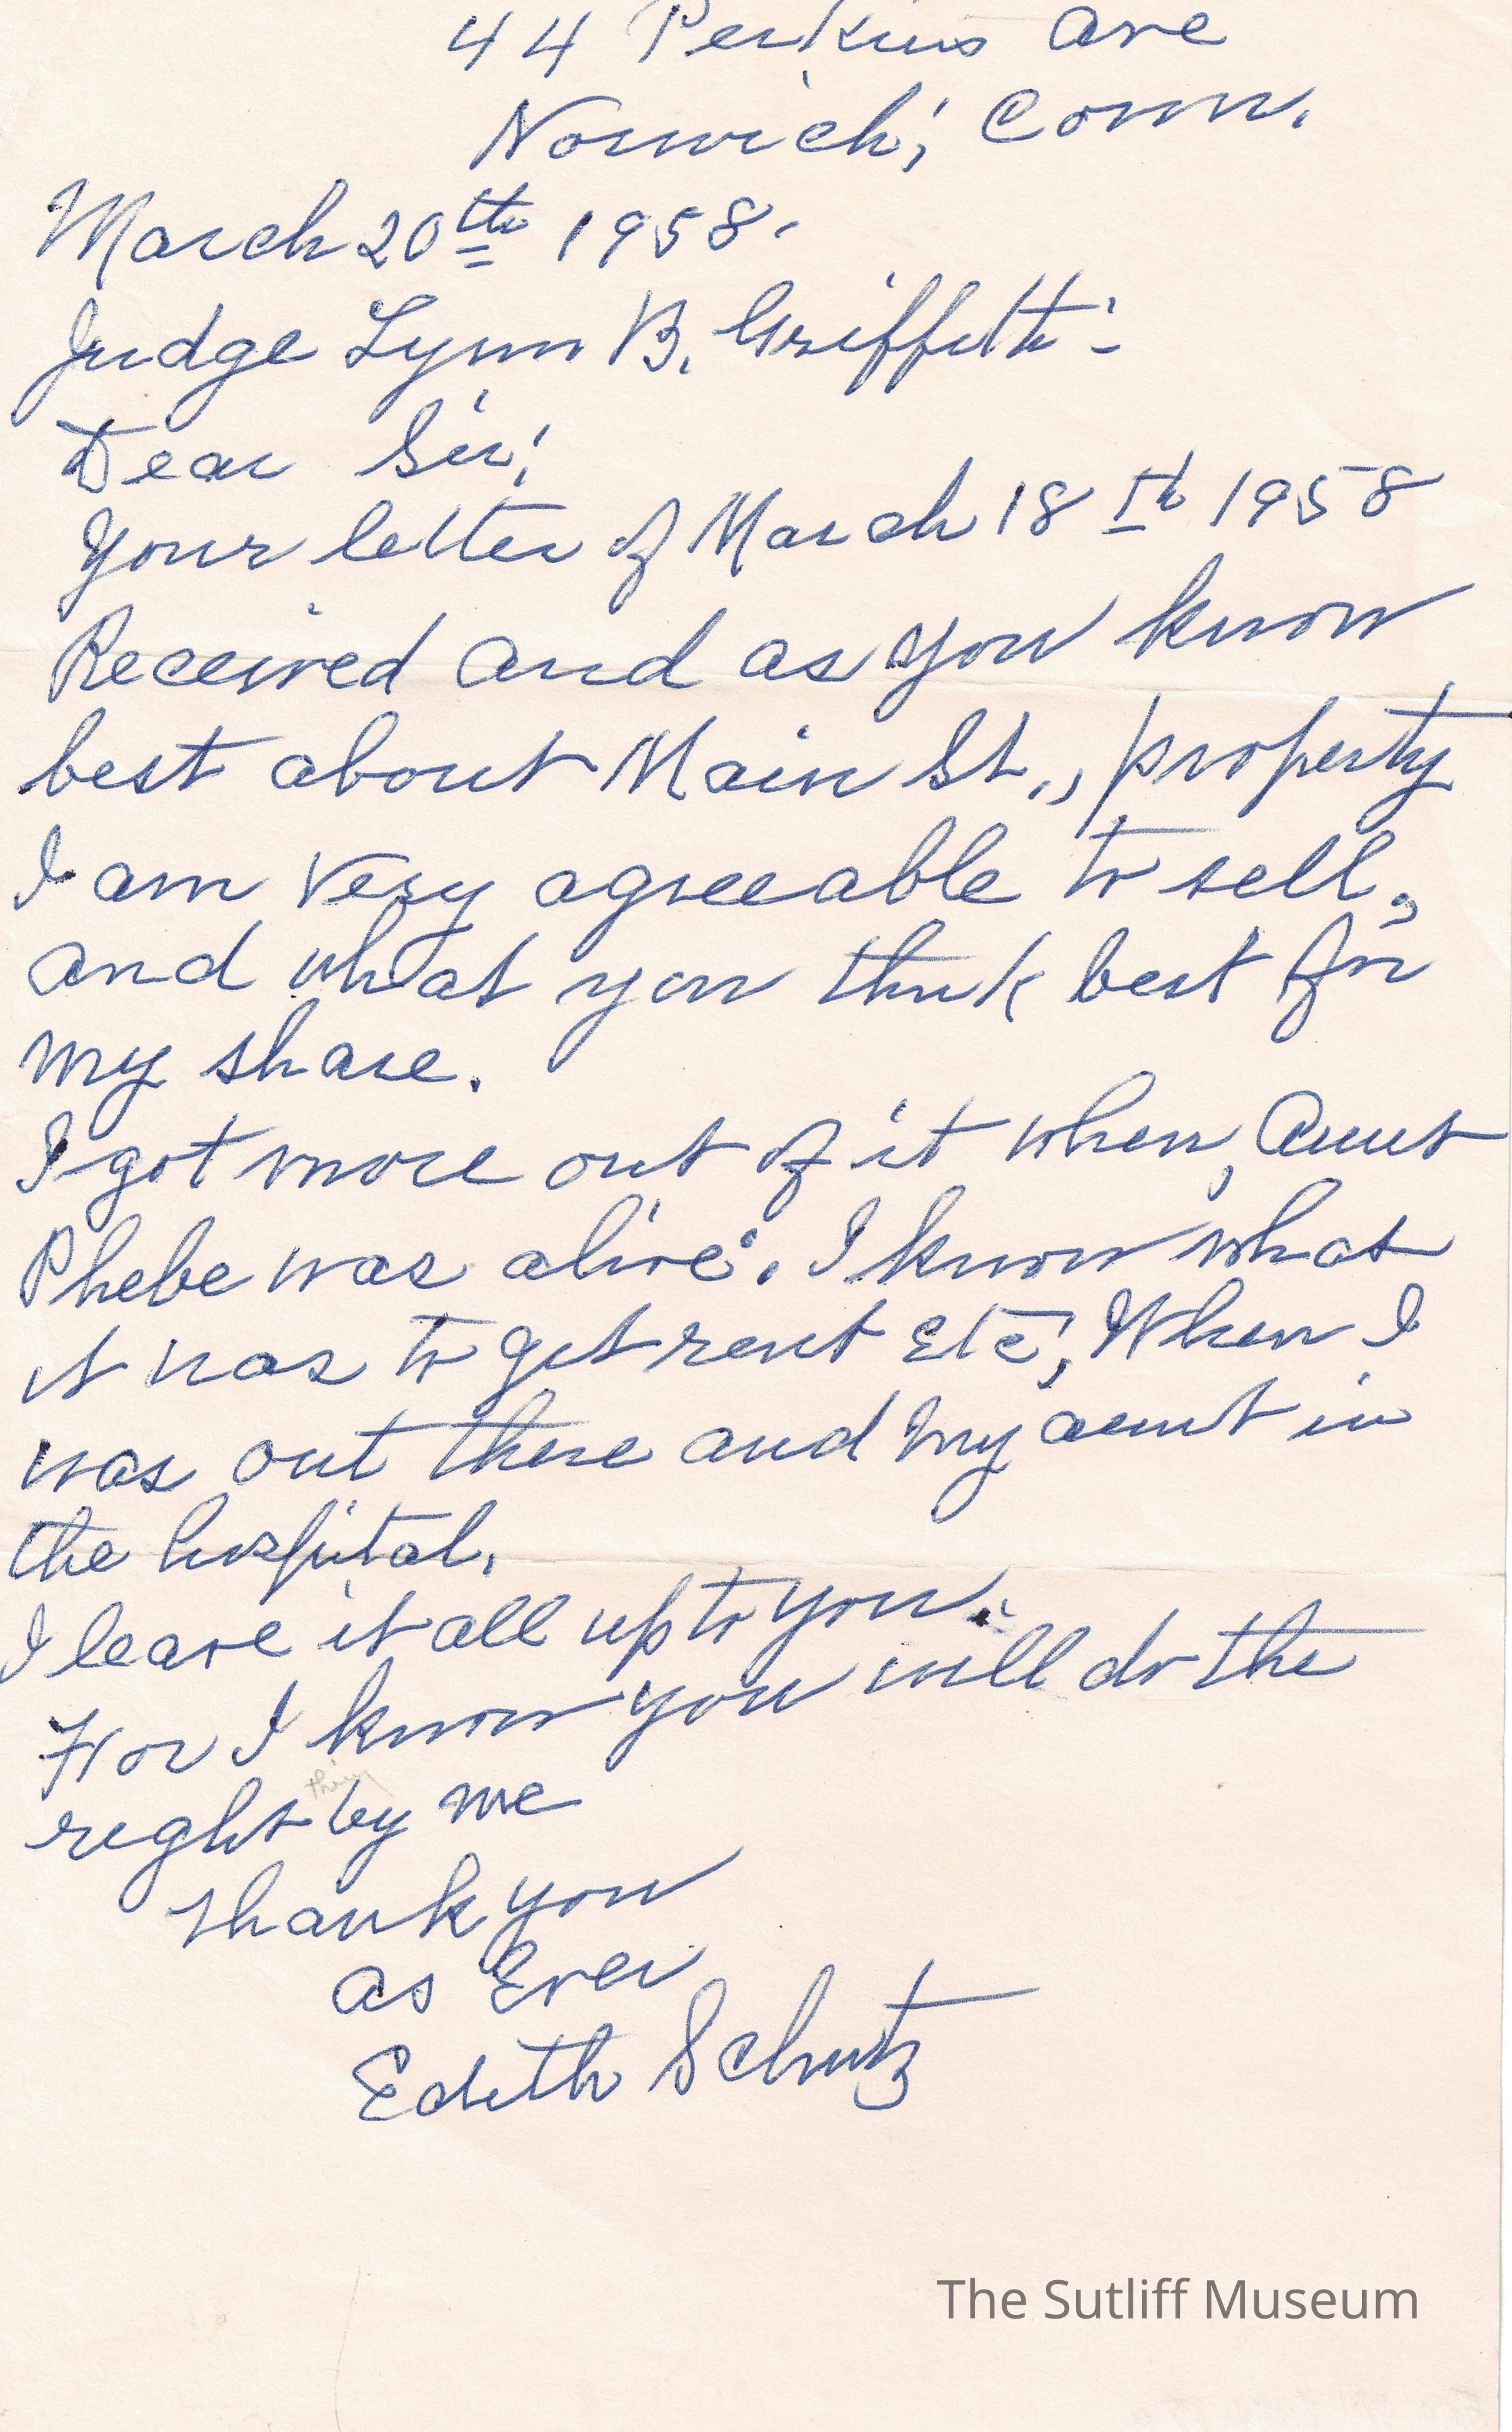 44 Perkins Ave
Norwich; Conn.
March 20th 1958.
Judge Lynn B. Griffith:-
Dear Sir;
Your letter of March 18th 1958
Received and as you know
best about Main St., property
I am very agreeable to sell,
and what you think best for
my share.
I got more out of it when, Aunt
Phebe was alive. I know what
it was to get rent Etc, When I
was out there and my aunt in
the hospital.
I leave it all up to you.
For I know you will do the
right thing by me
thank you
as Ever
Edith Schutz
The Sutliff Museum